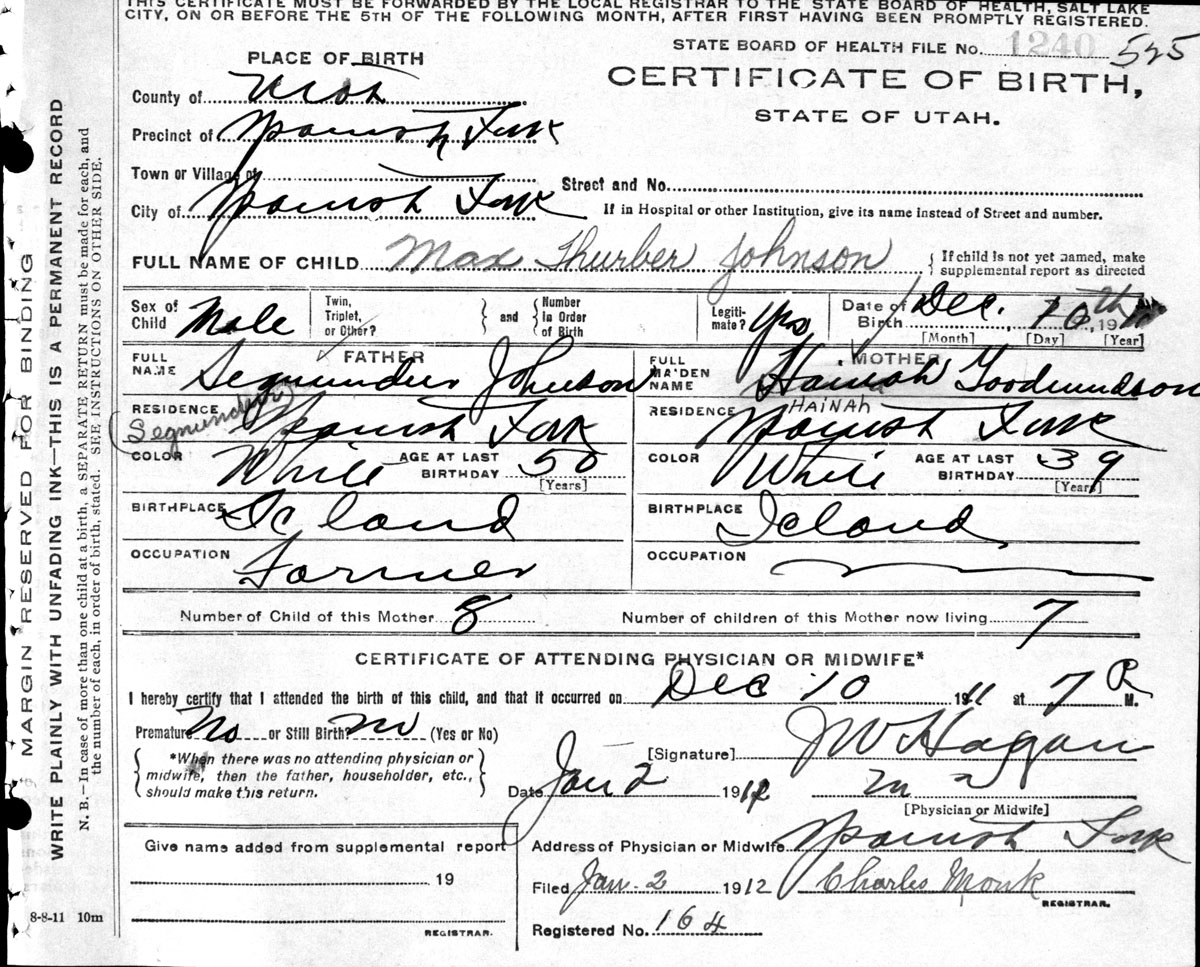 THIS CERTIFICATE MUST BE FORWARDED BY THE LOCAL REGISTRAR TO THE STATE BOARD OF HEALTH, SALT LAKE
CITY, ON OR BEFORE THE 5TH OF THE FOLLOWING MONTH, AFTER FIRST HAVING BEEN PROMPTLY REGISTERED.
STATE BOARD OF HEALTH FILE No. 1240 525
PLACE OF BIRTH
CERTIFICATE OF BIRTH,
STATE OF UTAH.
County of Utah
Precinct of Spanish Fork
Town or Village of
Street and No.
City of Spanish Fork
If in Hospital or other Institution, give its name instead of Street and number.
FULL NAME OF CHILD Max Thurber Johnson
{ If child is not yet named, make
supplemental report as directed
Sex of Child Male
Twin, Triplet, or Other? } and { Number In Order of Birth
Legitimate? Yes
Date of Birth Dec. 10th, 19
[Month] [Day] [Year]
FATHER
FULL NAME Segmundur Johnson
MOTHER
FULL MAIDEN NAME Hannah Goodmundson
HAINAH
RESIDENCE Spanish Fork
(Segmundur)
RESIDENCE Spanish Fork
COLOR White AGE AT LAST BIRTHDAY 50 [Years]
COLOR White AGE AT LAST BIRTHDAY 39 [Years]
BIRTHPLACE Iceland
BIRTHPLACE Iceland
OCCUPATION Farmer
OCCUPATION
Number of Child of this Mother 8
Number of children of this Mother now living 7
CERTIFICATE OF ATTENDING PHYSICIAN OR MIDWIFE*
I hereby certify that I attended the birth of this child, and that it occurred on Dec 10 1911 at 7 P M.
Premature No or Still Birth? No (Yes or No)
[Signature] J W Hagan
{ *When there was no attending physician or
midwife, then the father, householder, etc.,
should make this return. }
Date Jan 2 1912
[Physician or Midwife]
Address of Physician or Midwife Spanish Fork
Give name added from supplemental report
19
REGISTRAR.
Filed Jan - 2 1912 Charles Monk
REGISTRAR.
Registered No. 164
8-8-11 10m
MARGIN RESERVED FOR BINDING
WRITE PLAINLY WITH UNFADING INK—THIS IS A PERMANENT RECORD
N. B.—In case of more than one child at a birth, a SEPARATE RETURN must be made for each, and
the number of each, in order of birth, stated. SEE INSTRUCTIONS ON OTHER SIDE.